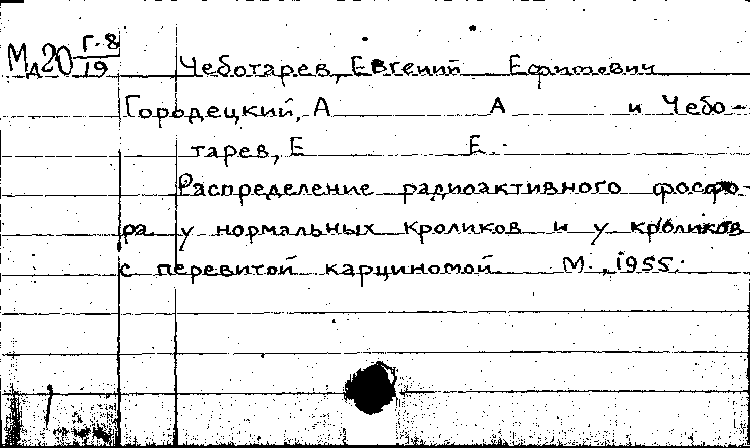 Г-8
Ми20 19 Чеботарев, Евгений Ефимович
Городецкий, А А и Чебо-
тарев, Е Е.
Распределение радиоактивного фосфо-
ра у нормальных кроликов и у кроликов
с перевитой карциномой М., 1955.